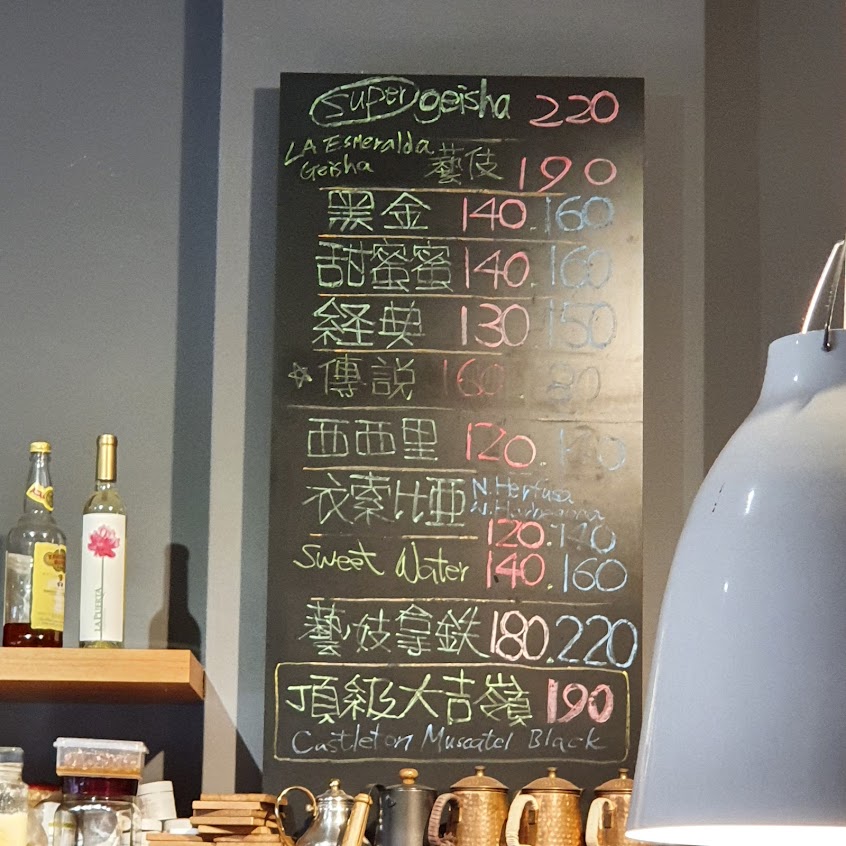 super geisha 220
LA Esmeralda
Geisha 藝伎 190
黑金 140.160
甜蜜蜜 140.160
経典 130.150
☆傳説 160
西西里 120.140
衣索比亜 N.Herfusa
120.140
Sweet Water 140.160
藝妓拿鉄 180.220
頂級大吉嶺 190
Castleton Muscatel Black
LA PUERTA